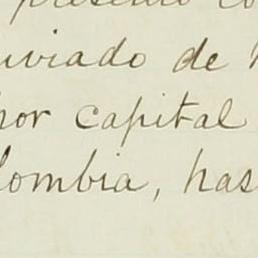 presento co
nviado de
por capital
lombia, has